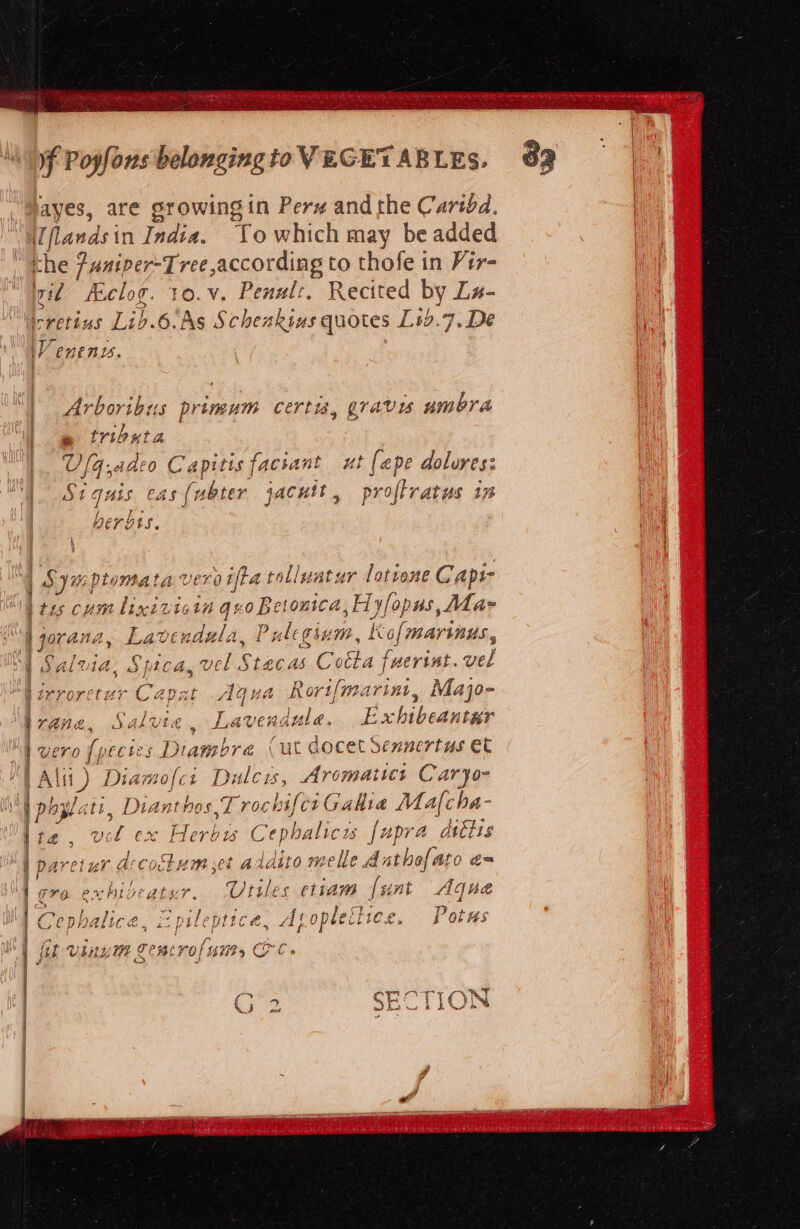 of Poyſons belonging to VEGETABLES. 83
Mayes, are growing in Peru and the Caribd.
Iſlands in India. To which may be added
the Juniper-Tree, according to thoſe in Vir-
gil Æclog. 10. v. Penult. Recited by Lu-
cretius Lib. 6. As Schenkius quotes Lib. 7. De
Venenis.
Arboribus primum certis, gravis umbra
tributa
Uſq, adeo Capitis faciant ut ſæpe dolores:
Siquis eas ſubter jacuit, proſtratus in
herbis.
Symptomata verò iſta tolluntur lotione Capi-
tis cum lixivio in quo Betonica, Hyſopus, Ma-
jorana, Lavendula, Pulegium, Roſmarinus,
Salvia, Spica, vel Stæcas Cocta fuerint. vel
irroretur Caput Aqua Roriſmarini, Majo-
ranæ, Salviæ, Lavendulæ. Exhibeantur
vero ſpecies Diambræ (ut docet Sennertus et
Alii) Diamoſci Dulcis, Aromatici Caryo-
phylati, Dianthos, Trochiſci Galliæ Maſcha-
tæ, vel ex Herbis Cephalicis ſupra dictis
paretur decoctum, et addito melle Anthoſato æ-
gro exhibeatur. Utiles etiam ſunt Aquæ
Cephalicæ, Epilepticæ, Apoplecticæ. Potus
ſit vinum generoſum, &c.
G 2 SECTION